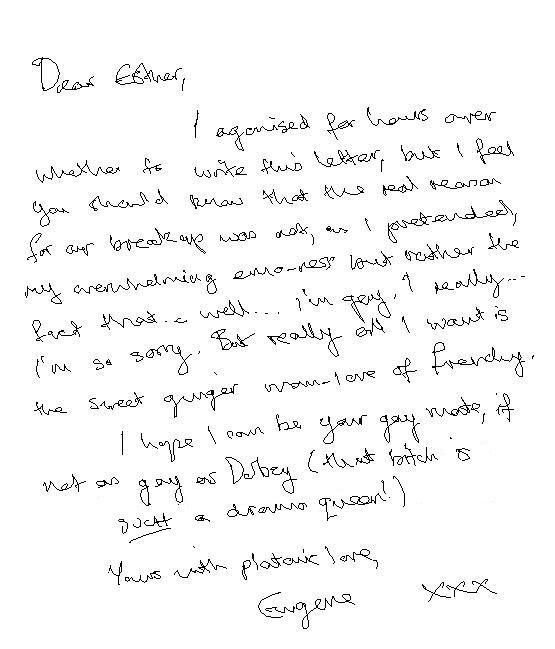 Dear Esther,
I agonised for hours over
whether to write this letter, but I feel
you should know that the real reason
for our breakup was not, as I pretended,
my overwhelming emo-ness but rather the
fact that... well... i'm gay. I really...
i'm so sorry. But really all I want is
the sweet ginger man-love of
I hope I can be your gay mate, if
not as gay as Dobey (that bitch is
such a drama queen!)
Yours with platonic love,
Eugene xxx